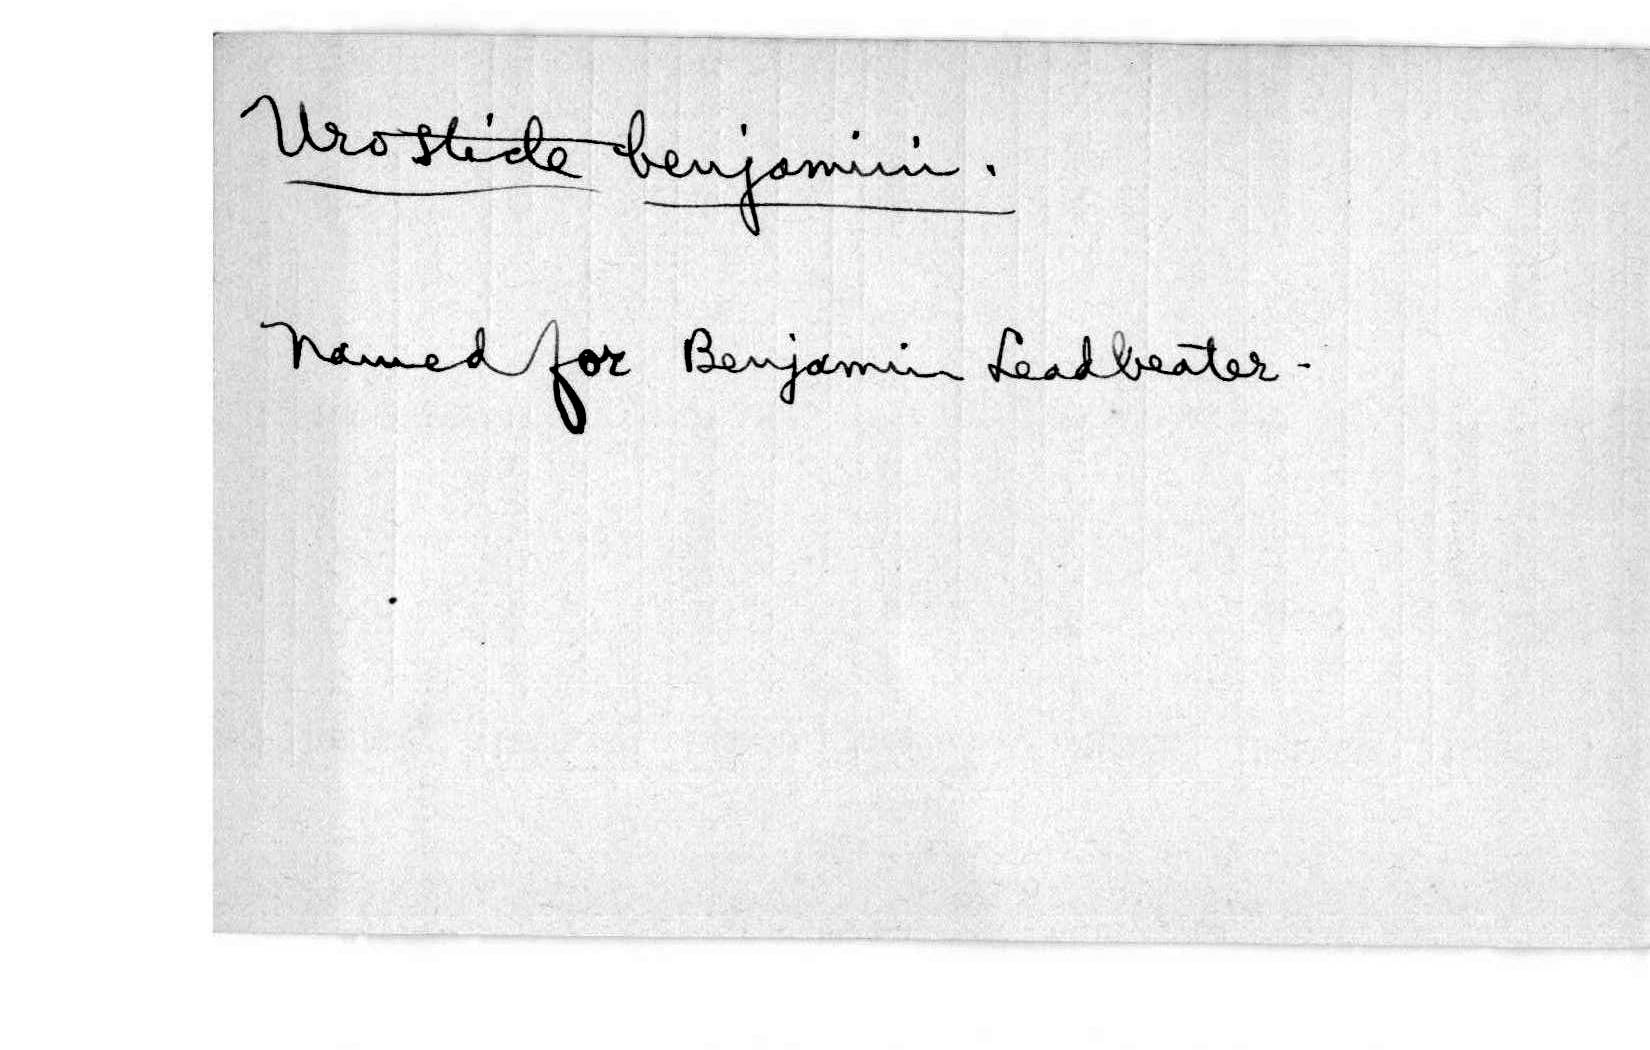 Urosticte benjamini.
Named for Benjamin Leadbeater -